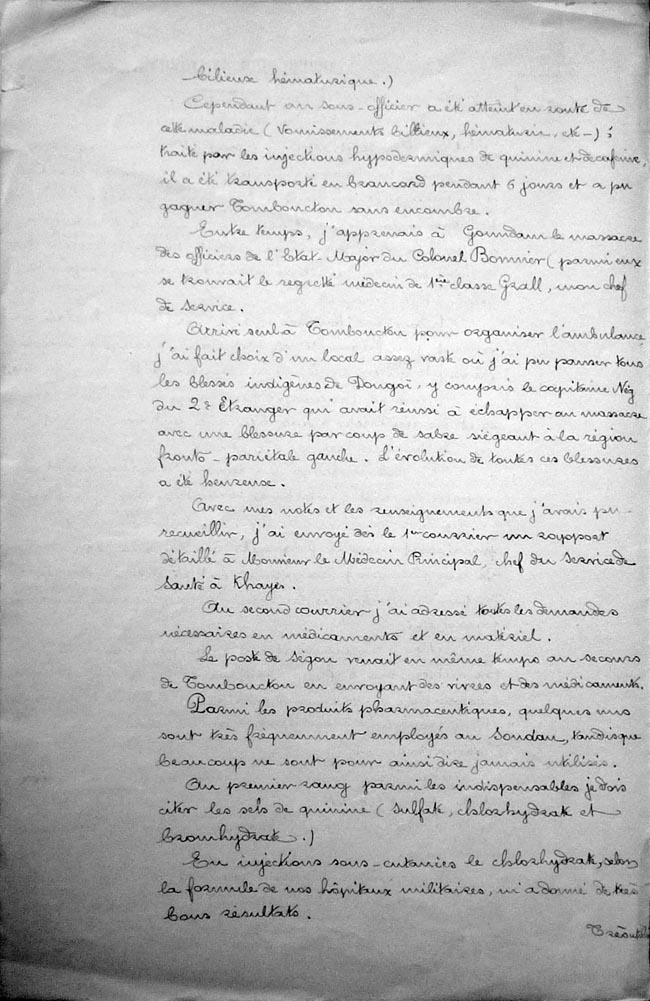 bilieuse hématurique.)
Cependant un sous-officier a été atteint en route de
cette maladie (Vomissements billieux, hématurie, etc-);
traité par les injections hypodermiques de quinine et de caféine,
il a été transporté en brancard pendant 6 jours et a pu
gagner Tombouctou sans encombre.
Entre temps, j'apprenais à Goundam le massacre
des officiers de l'Etat-Major du Colonel Bonnier (parmi eux
se trouvait le regretté médecin de 1ère classe Grall, mon chef
de service.
Arrivé seul à Tombouctou pour organiser l'ambulance
j'ai fait choix d'un local assez vaste où j'ai pu panser tous
les blessés indigènes de Dongoï, y compris le capitaine Nég
du 2d Etranger qui avait réussi à échapper au massacre
avec une blessure par coup de sabre siégeant à la région
fronto-pariétale gauche. L'évolution de toutes ces blessures
a été heureuse.
Avec mes notes et les renseignements que j'avais pu
recueillir, j'ai envoyé dès le 1er courrier un rapport
détaillé à Monsieur le Médecin Principal, chef du Service de
Santé à Khayes.
Au second courrier j'ai adressé toutes les demandes
nécessaires en médicaments et en matériel.
Le poste de Ségou venait en même temps au secours
de Tombouctou en envoyant des vivres et des médicaments.
Parmi les produits pharmaceutiques, quelques uns
sont très fréquemment employés au Soudan, tandisque
beaucoup ne sont pour ainsi dire jamais utilisés.
Au premier rang parmi les indispensables je dois
citer les sels de quinine (Sulfate, chlorhydrate et
bromhydrate.)
En injections sous-cutanées le chlorhydrate, selon
la formule de nos hôpitaux militaires, m'a donné de très
bons résultats.